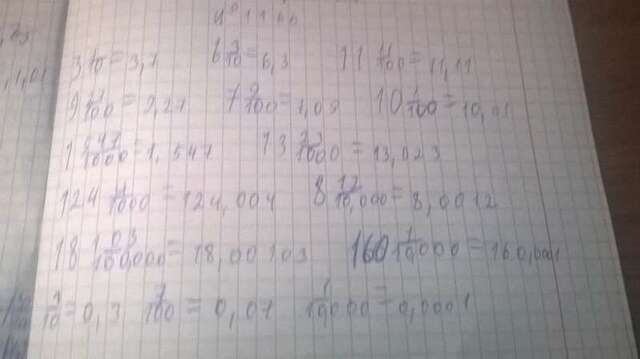 №1166
3 1/10 = 3,1 6 3/10 = 6,3 11 11/100 = 11,11
9 27/100 = 9,27 7 9/100 = 7,09 10 1/100 = 10,01
1 547/1000 = 1,547 13 23/1000 = 13,023
124 4/1000 = 124,004 8 12/10,000 = 8,0012
18 103/100,000 = 18,00103 160 1/10,000 = 160,0001
3/10 = 0,3 7/100 = 0,07 1/10,000 = 0,0001